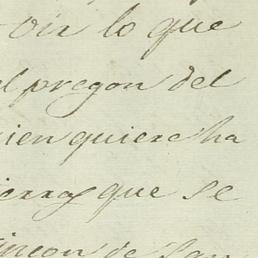 oir lo que
el pregon del
ien quiere ha
ierras que se
incon de San